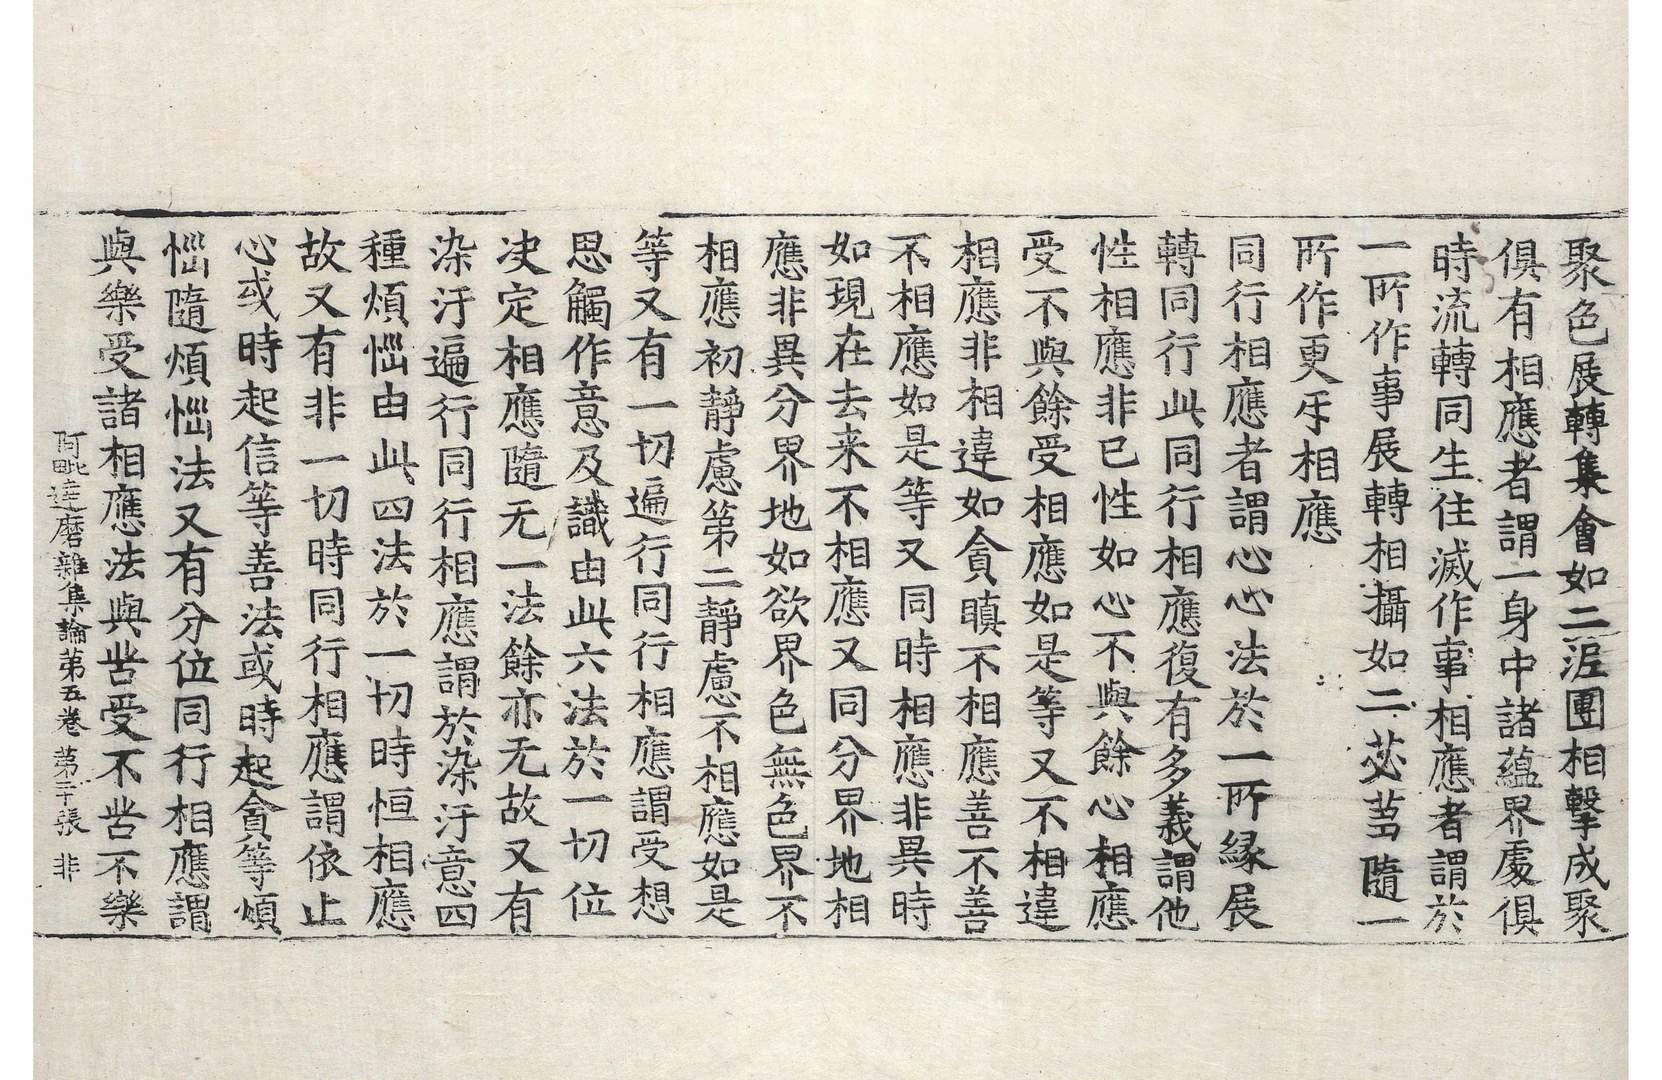 聚色展轉集會如二泥團相擊成聚
俱有相應者謂一身中諸蘊界處俱
時流轉同生住滅作事相應者謂於
一所作事展轉相攝如二苾蒭隨一
所作更乎相應
同行相應者謂心心法於一所緣展
轉同行此同行相應復有多義謂他
性相應非已性如心不與餘心相應
受不與餘受相應如是等又不相違
相應非相違如貪瞋不相應善不善
不相應如是等又同時相應非異時
如現在去来不相應又同分界地相
應非異分界地如欲界色無色界不
相應初靜慮第二靜慮不相應如是
等又有一切遍行同行相應謂受想
思觸作意及識由此六法於一切位
决定相應隨无一法餘亦无故又有
染汙遍行同行相應謂於染汙意四
種煩惱由此四法於一切時恒相應
故又有非一切時同行相應謂依止
心或時起信等善法或時起貪等煩
惱隨煩惱法又有分位同行相應謂
與樂受諸相應法與苦受不苦不樂
阿毗達磨雜集論第五卷 第二十張 非